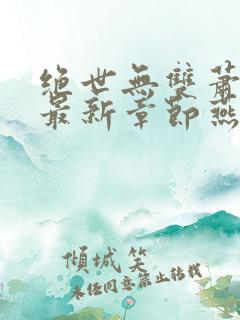 絕世無雙蕭
最新章節燕
傾城笑
未經同意禁止轉載